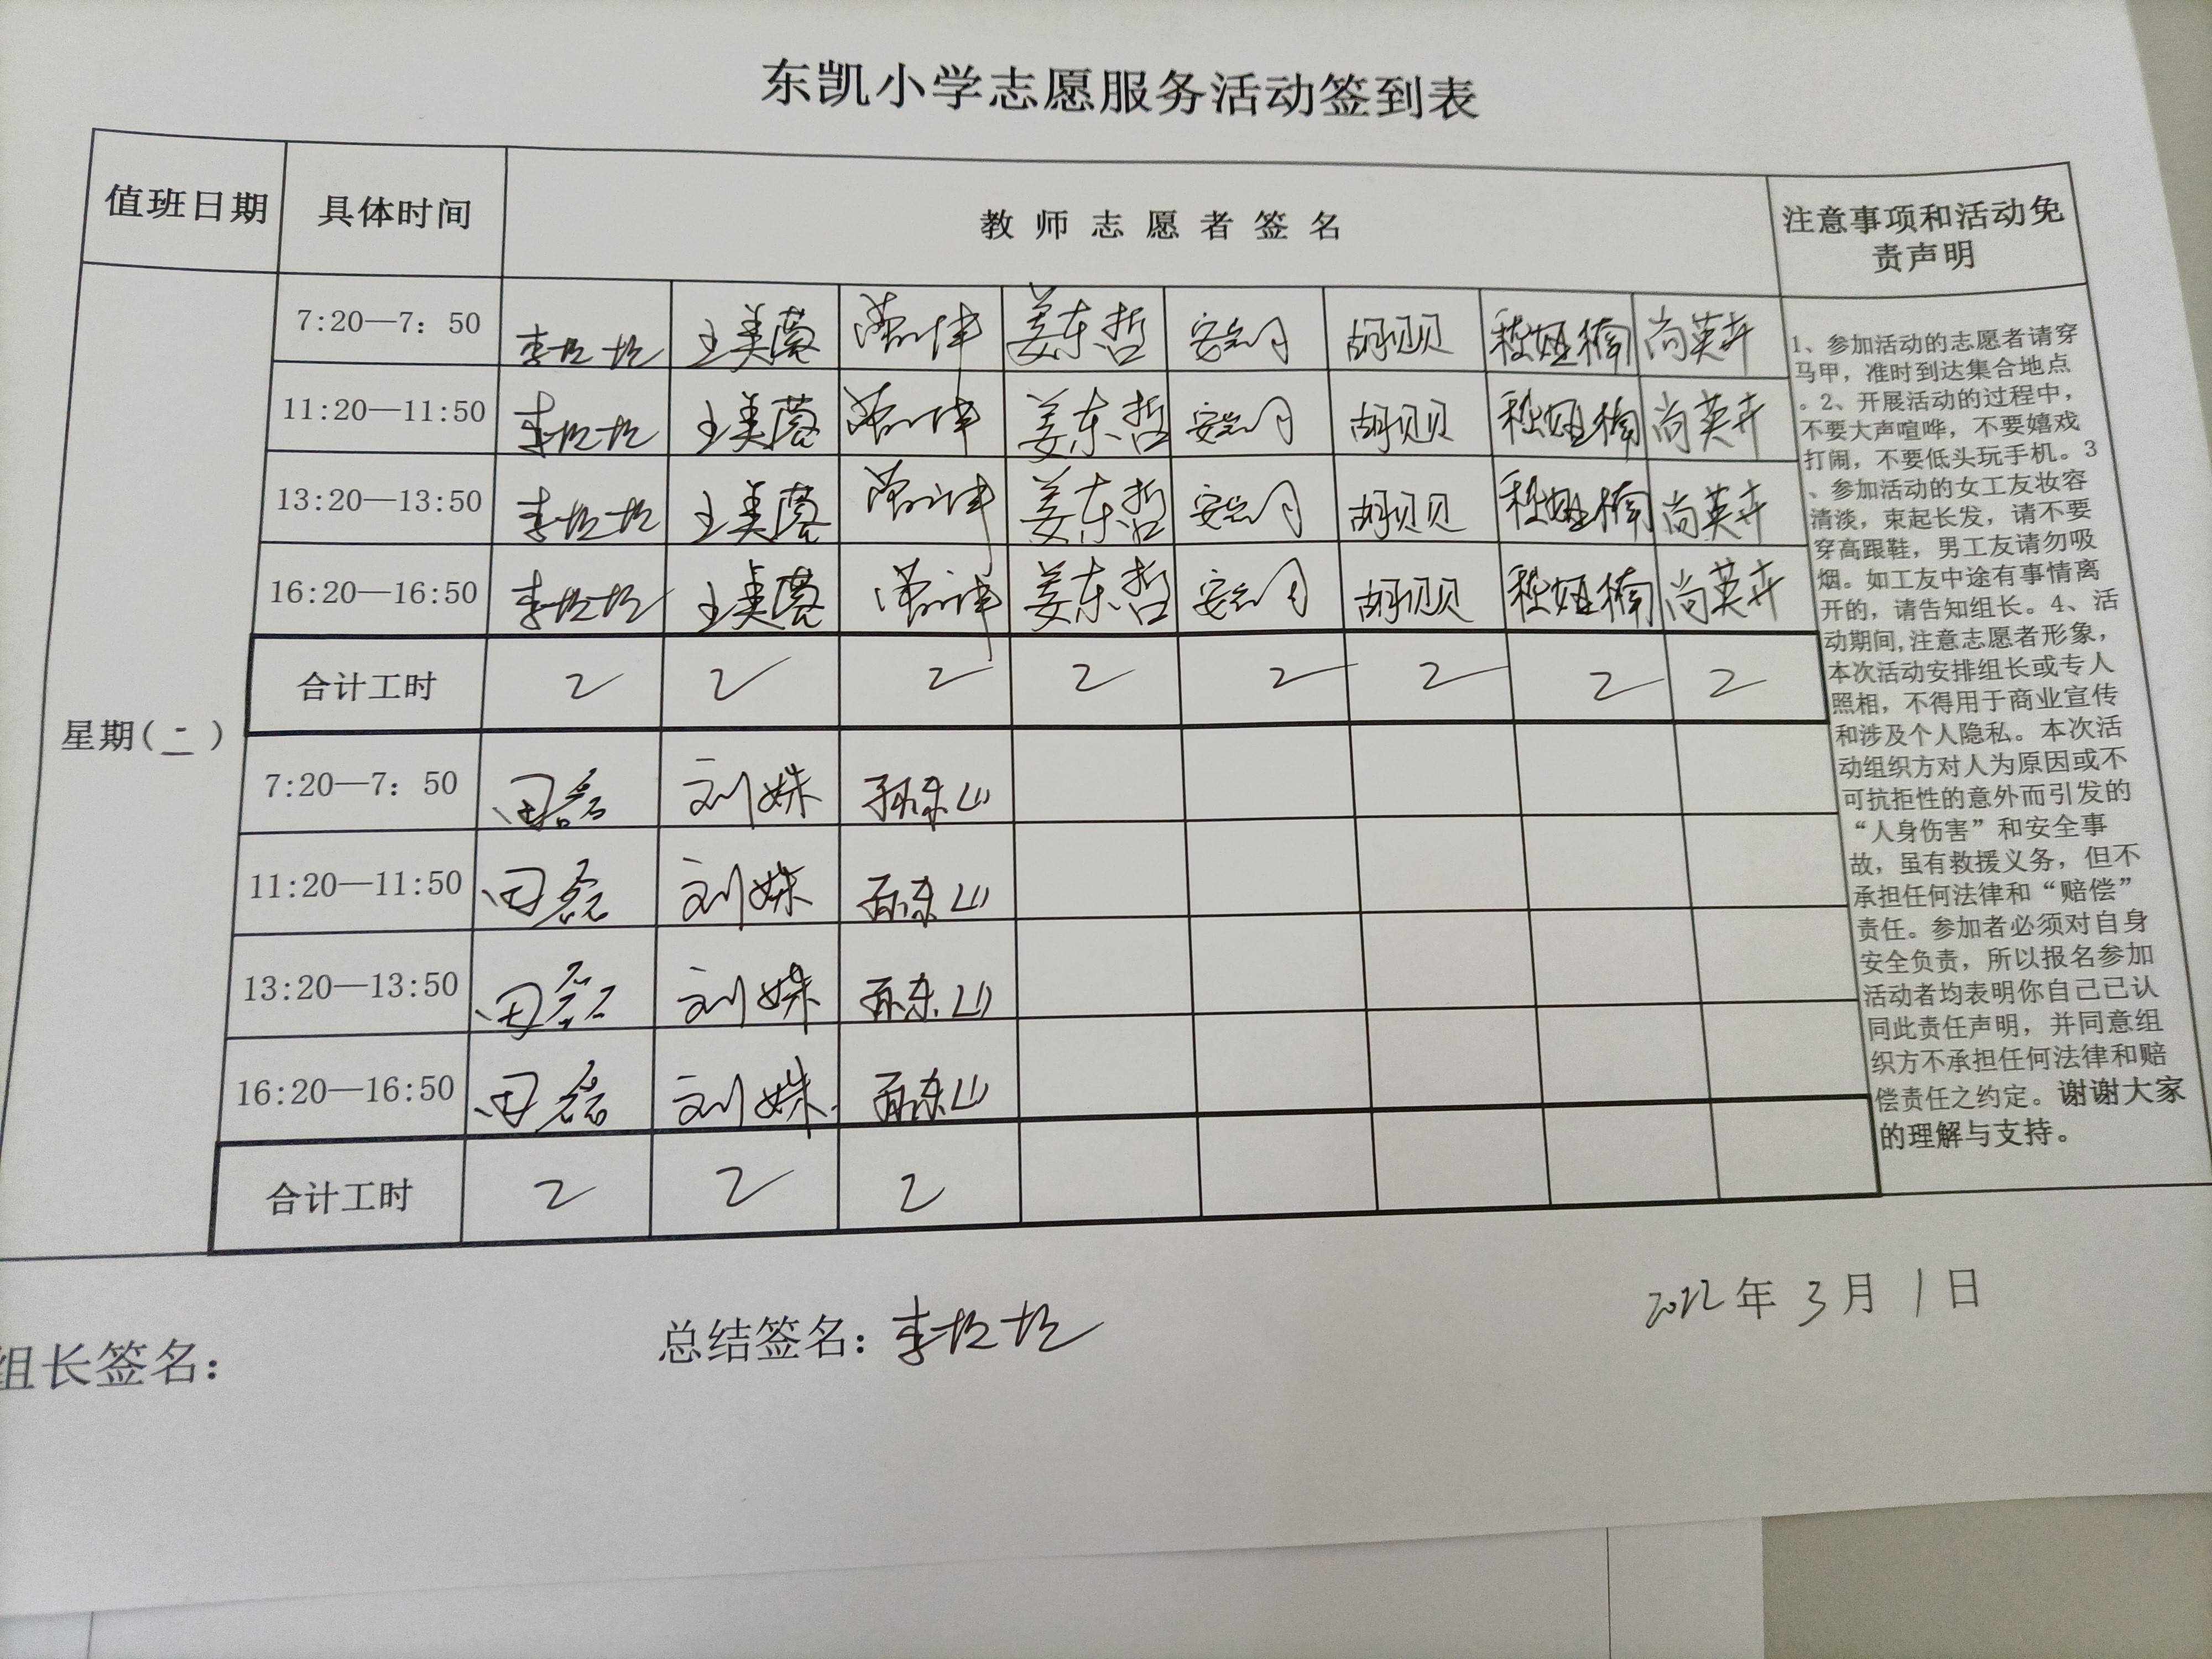 东凯小学志愿服务活动签到表
值班日期 具体时间 教师志愿者签名 注意事项和活动免
责声明
7:20—7：50 王美蓉 姜东哲 胡贝贝 尚英卉
11:20—11:50 王美蓉 姜东哲 胡贝贝 尚英卉
13:20—13:50 王美蓉 姜东哲 胡贝贝 尚英卉
16:20—16:50 王美蓉 姜东哲 胡贝贝 尚英卉
合计工时 2 2 2 2 2 2 2 2
星期(二)
7:20—7：50 田磊 刘姝 孙东山
11:20—11:50 田磊 刘姝 孙东山
13:20—13:50 田磊 刘姝 孙东山
16:20—16:50 田磊 刘姝 孙东山
合计工时 2 2 2
1、参加活动的志愿者请穿
马甲，准时到达集合地点
。2、开展活动的过程中，
不要大声喧哗，不要嬉戏
打闹，不要低头玩手机。3
、参加活动的女工友妆容
清淡，束起长发，请不要
穿高跟鞋，男工友请勿吸
烟。如工友中途有事情离
开的，请告知组长。4、活
动期间,注意志愿者形象，
本次活动安排组长或专人
照相，不得用于商业宣传
和涉及个人隐私。本次活
动组织方对人为原因或不
可抗拒性的意外而引发的
“人身伤害”和安全事
故，虽有救援义务，但不
承担任何法律和“赔偿”
责任。参加者必须对自身
安全负责，所以报名参加
活动者均表明你自己已认
同此责任声明，并同意组
织方不承担任何法律和赔
偿责任之约定。谢谢大家
的理解与支持。
组长签名： 总结签名： 2022年3月1日